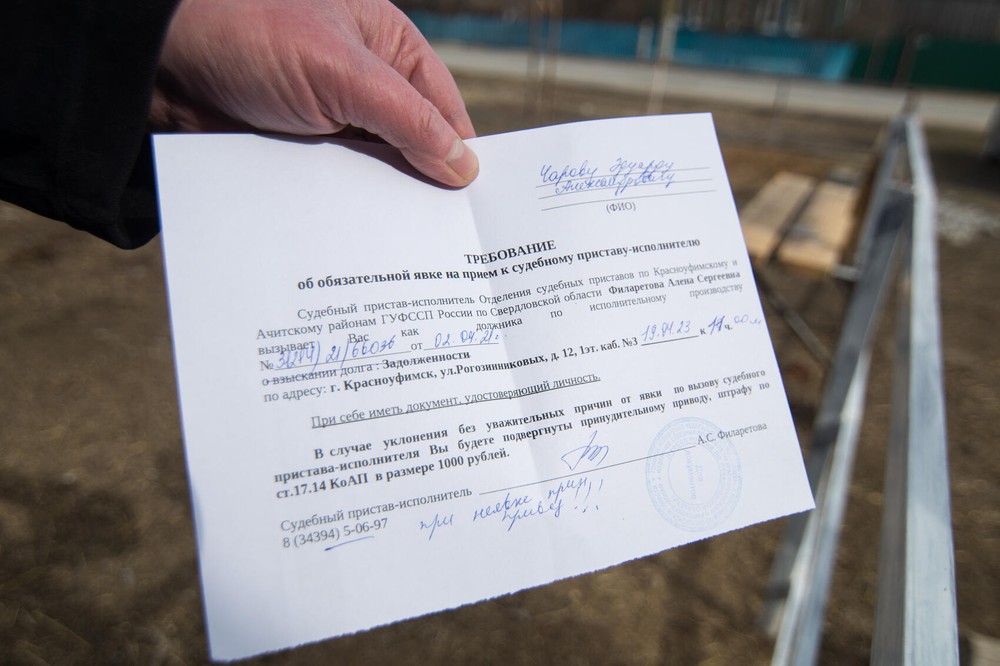 Чарову Эдуарду
Александровичу
(ФИО)
ТРЕБОВАНИЕ
об обязательной явке на прием к судебному приставу-исполнителю
Судебный пристав-исполнитель Отделения судебных приставов по Красноуфимскому и
Ачитскому районам ГУФССП России по Свердловской области Филаретова Алена Сергеевна
вызывает Вас как должника по исполнительному производству
№ 21/66036 от 02.04.21г
о взыскании долга : Задолженности
по адресу: г. Красноуфимск, ул.Рогозинниковых, д. 12, 1эт. каб. №3 19.04.23 к 11 ч. 00 м
При себе иметь документ, удостоверяющий личность.
В случае уклонения без уважительных причин от явки по вызову судебного
пристава-исполнителя Вы будете подвергнуты принудительному приводу, штрафу по
ст.17.14 КоАП в размере 1000 рублей.
Судебный пристав-исполнитель А.С. Филаретова
8 (34394) 5-06-97
при неявке прин.
привод!!!